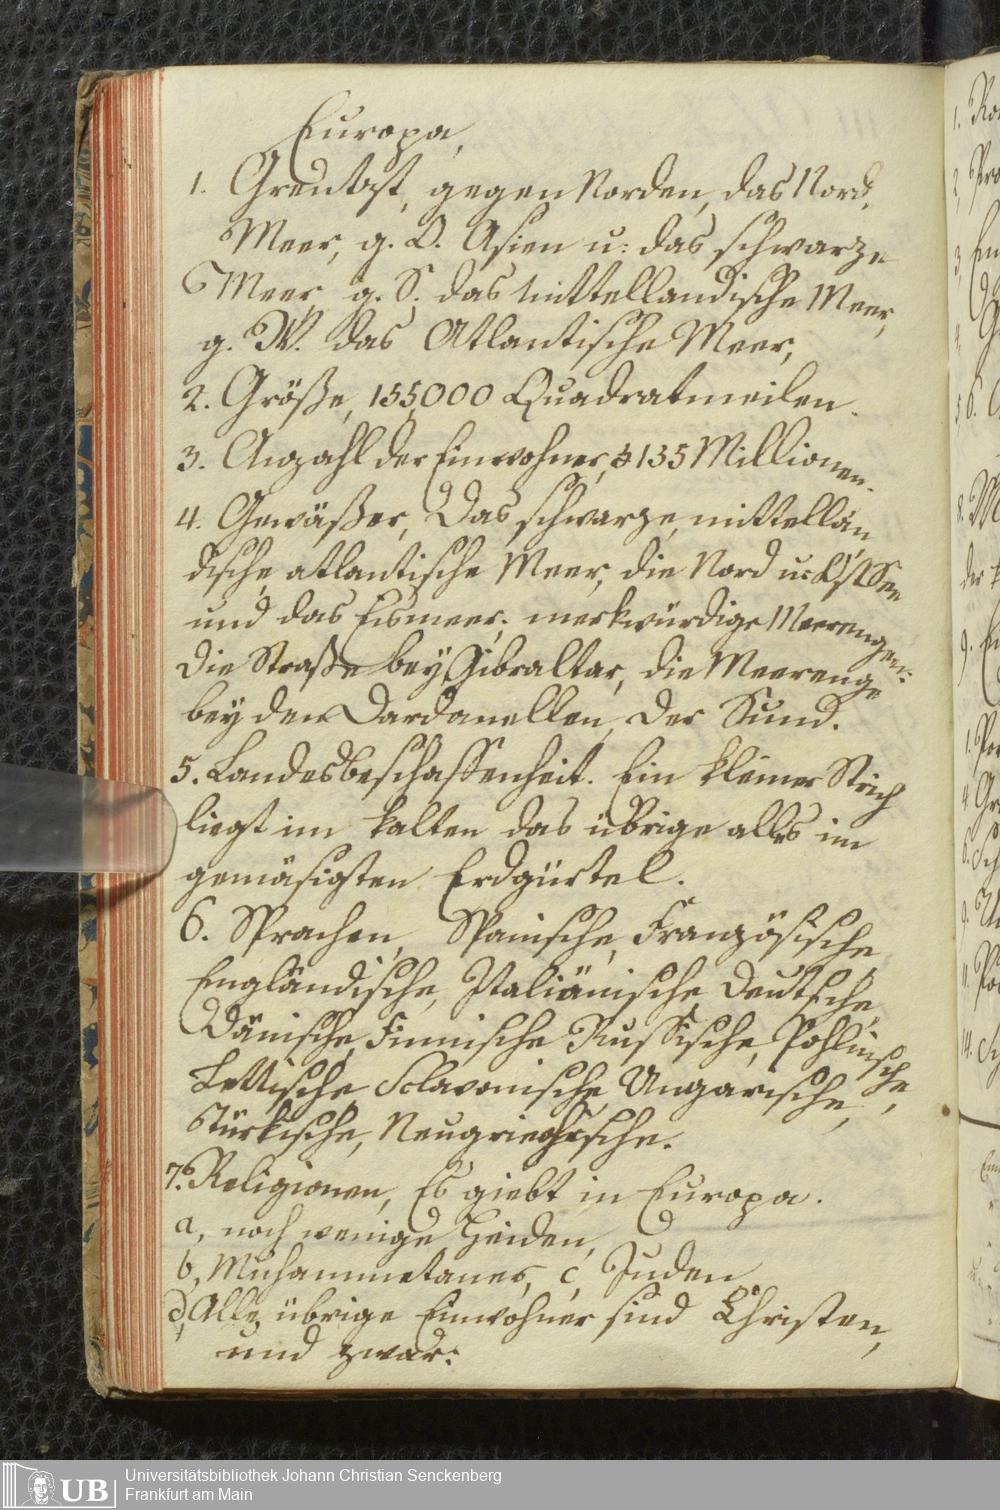 Europa,
1. Grentzt, gegen Norden, das Nord,
Meer, g. O. Asien u: das schwarze
Meer g. S. das mittellandische Meer,
g. W. das Atlantische Meer,
2. Größe, 155000 Quadratmeilen.
3. Anzahl der Einwohner, 135 Millionen.
4. Gewäßer, Das schwarze, mittellän
dische, atlantische Meer, die Nord u: OstSee
und das Eismeer. merkwürdige Meerengen:
die Straße bey Gibraltar, die Meerenge
bey den Dardanellen, der Sund.
5. Landesbeschaffenheit. Ein kleiner Strich
liegt im kalten das übrige alles im
gemäsigten Erdgürtel.
6. Sprachen, Spanische, Französische
Engländische, Italiänische Deutsche,
Dänische, Finnische Russische, Pohlnische
Lettische Sclavonische, Ungarische,
Türkische, Neugriechische.
7. Religionen, Es giebt in Europa.
a, noch wenige Heiden,
b, Muhammetaner, c, Juden
d, Alle übrige Einwohner sind Christen,
und zwar:
UB
Universitätsbibliothek Johann Christian Senckenberg
Frankfurt am Main